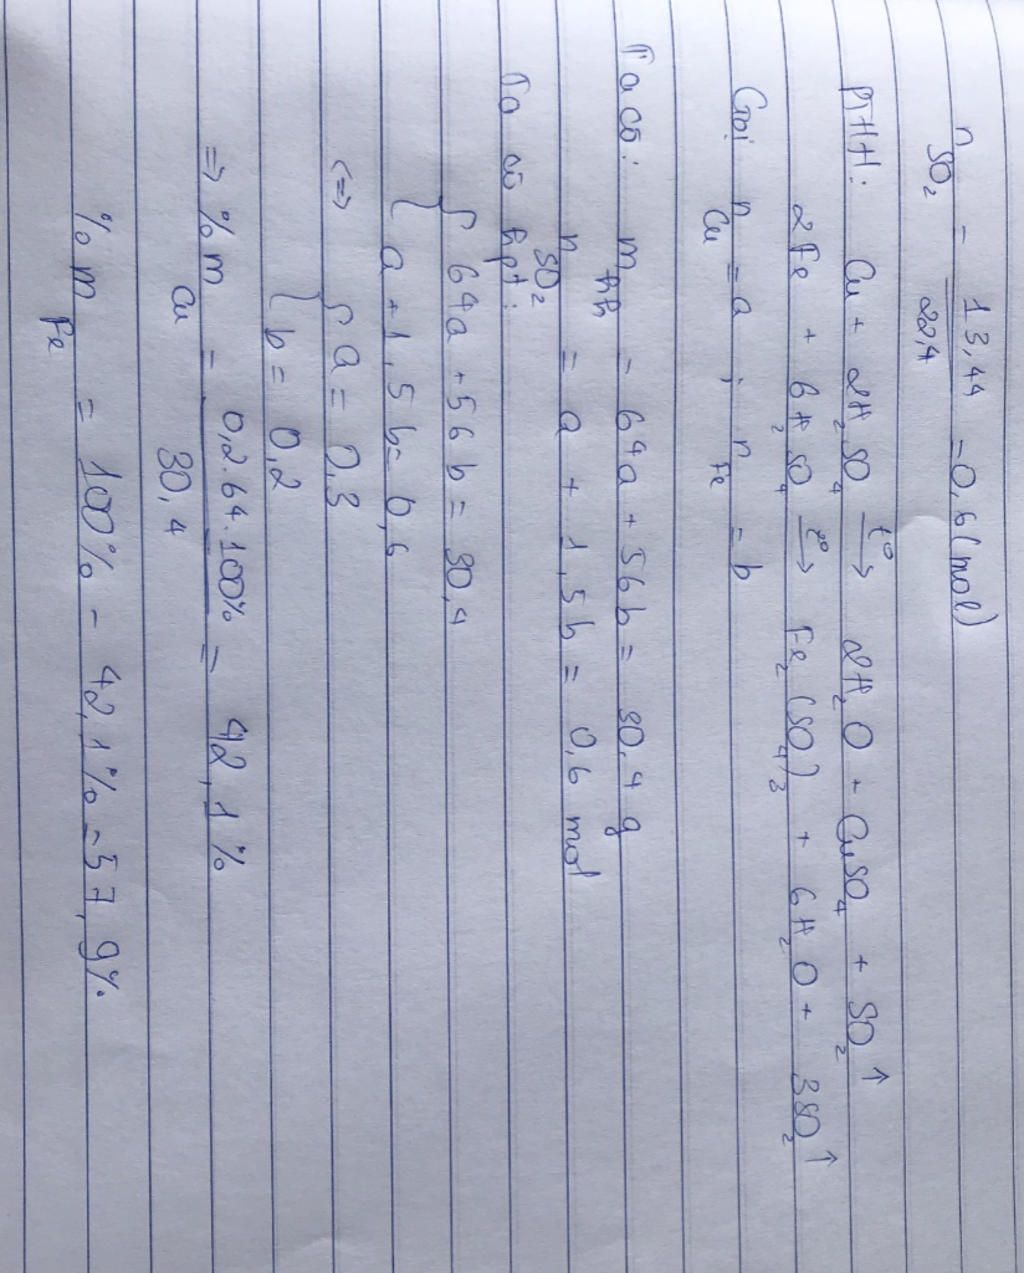 n SO₂ = 13,44 / 22,4 = 0,6 (mol)
PTHH: Cu + 2H₂SO₄ t° → 2H₂O + CuSO₄ + SO₂ ↑
2Fe + 6H₂SO₄ t° → Fe₂(SO₄)₃ + 6H₂O + 3SO₂ ↑
Gọi n Cu = a ; n Fe = b
Ta có: m hh = 64a + 56b = 30,4 g
n SO₂ = a + 1,5b = 0,6 mol
Ta có hpt:
{ 64a + 56b = 30,4
a + 1,5b = 0,6
<=> { a = 0,3
b = 0,2
=> % m Cu = 0,2.64.100% / 30,4 = 42,1%
% m Fe = 100% - 42,1% = 57,9%.